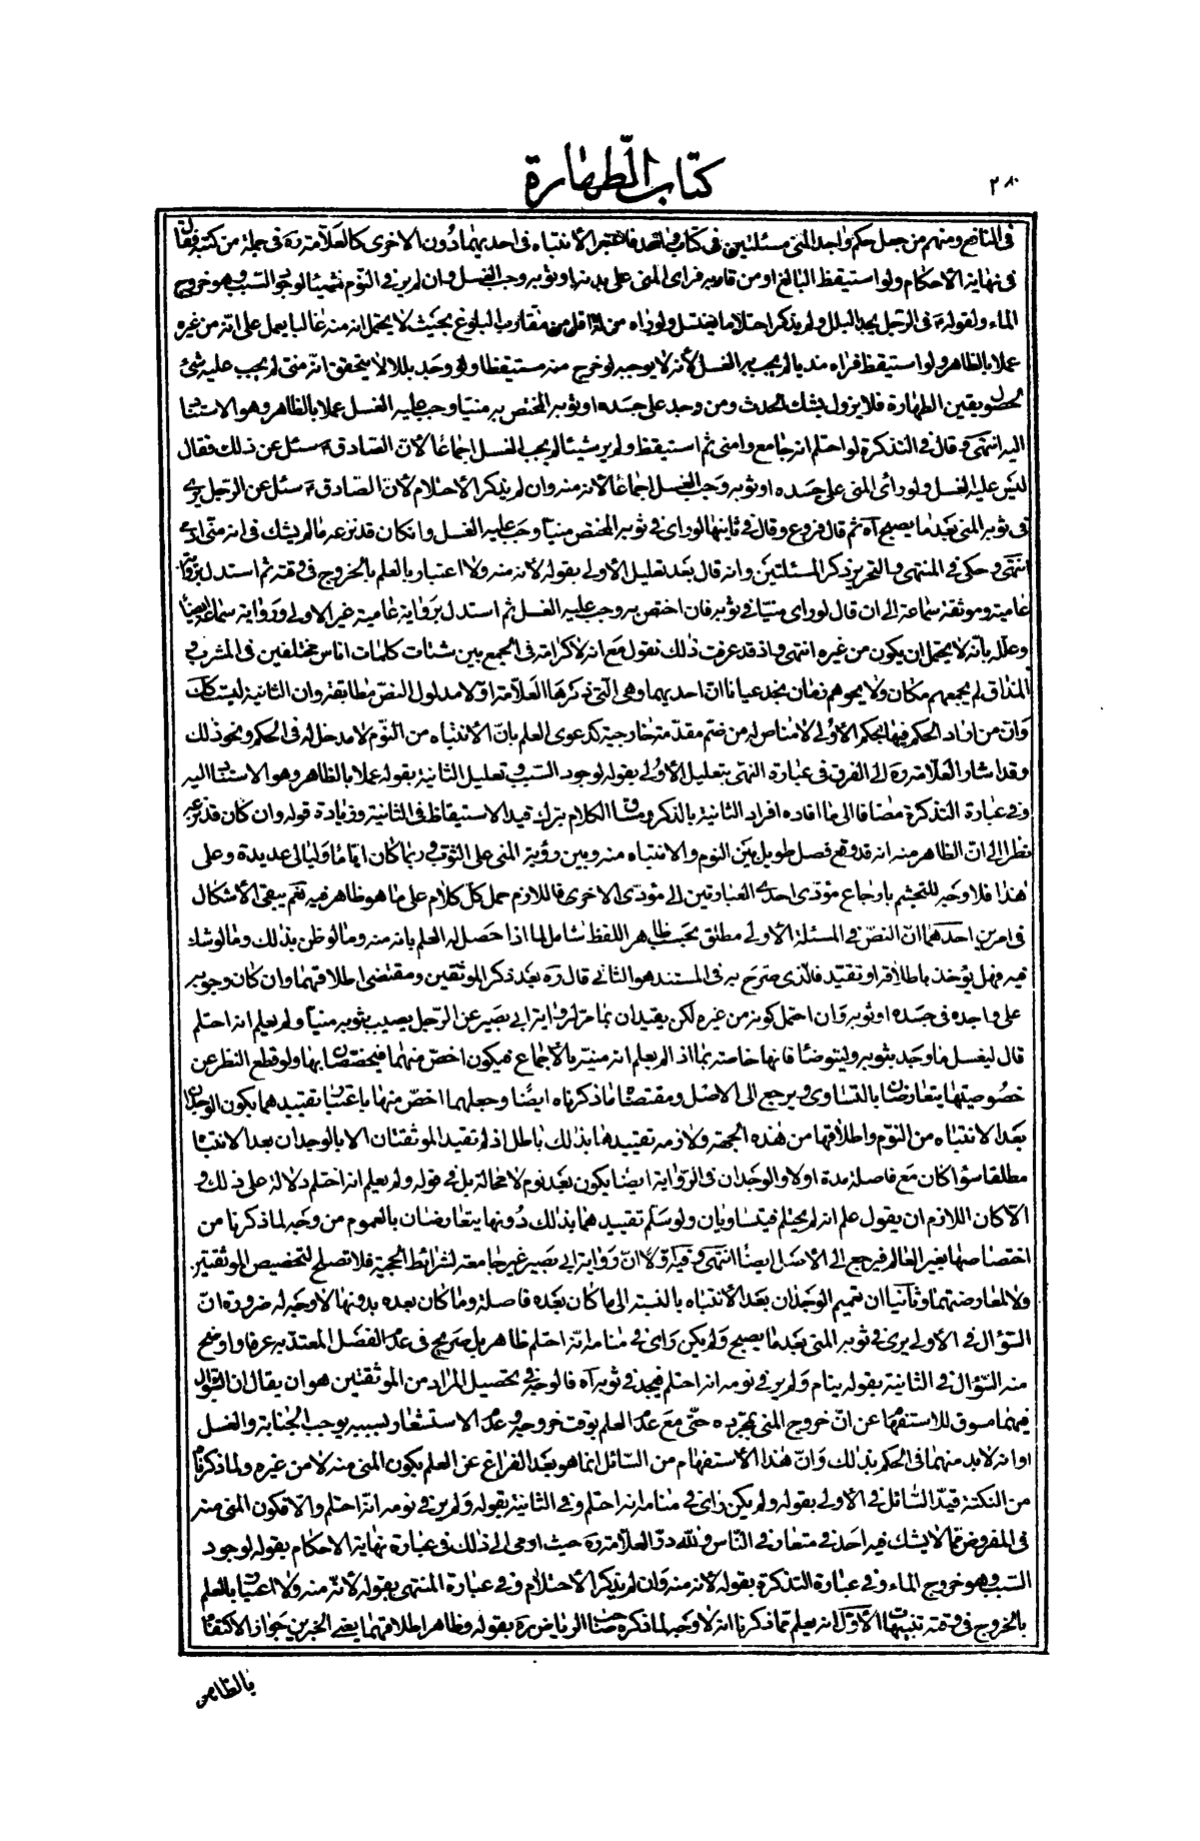 ٢٨٠
كتاب الطهارة
في النافع ومنهم من جعل حكم واجد المني مسئلتين في كتاب واحد فاعتبر الانتباه في احديهما دون الاخرى كالعلامة ره في جملة من كتبه فقال
في نهاية الأحكام ولو استيقظ البالغ او من قاربه فراى المني على بدنه او ثوبه وجب الغسل وان لم ير في النوم شيئا لوجود السبب وهو خروج
الماء ولقوله في الرجل يجد البلل ولم يذكر احتلاما يغتسل ولو راه من اقل من مقارب البلوغ بحيث لا يحتمل انه منه غالبا يعمل على انه من غيره
عملا بالظاهر ولو استيقظ فراه مذيا لم يجب به الغسل لأنه لا يوجبه لو خرج منه مستيقظا ولو وجد بللا لا يتحقق انه مني لم يجب عليه شئ
لحصول يقين الطهارة فلا يزول بشك الحدث ومن وجد على جسده او ثوبه المختص به منيا وجب عليه الغسل عملا بالظاهر وهو الاستناد
اليه انتهى وقال في التذكرة لو احتلم انه جامع وامنى ثم استيقظ ولم ير شيئا لم يجب الغسل اجماعا لأن الصادق سئل عن ذلك فقال
ليس عليه الغسل ولو راى المني على جسده او ثوبه وجب الغسل اجماعا لأنه منه وان لم يذكر الأحتلام لأن الصادق سئل عن الرجل يرى
في ثوبه المني بعد ما يصبح آه ثم قال فروع وقال في ثانيها لو راى في ثوبه المختص منيا وجب عليه الغسل وان كان قد نزعه ما لم يشك في انه مني ادمي
انتهى وحكى في المنتهى والتحرير ذكر المسئلتين وانه قال بعد تعليل الأولى بقوله لأنه منه ولا اعتبار بالعلم بالخروج في وقته ثم استدل برواية
عامية وموثقة سماعة الى ان قال لو راى منيا في ثوبه فان اختص به وجب عليه الغسل ثم استدل برواية عامية غير الاولى ورواية سماعة ايضا
وعلله بأنه لا يحتمل ان يكون من غيره انتهى واذ قد عرفت ذلك نقول مع انه لا كرامة في الجمع بين شتات كلمات اناس مختلفين في المشرب
المذاق لم يجمعهم مكان ولا يحويهم زمان نجد عيانا ان احديهما وهي التي ذكرها العلامة اولا مدلول النص مطابقة وان الثانية ليست كك
وان من اراد الحكم فيها بحكم الأولى لا مناص له من ضم مقدمة خارجية كدعوى العلم بان الأنتباه من النوم لا مدخل له في الحكم ونحو ذلك
وقد اشار العلامة ره الى الفرق في عبارة النهي بتعليل الأولى بقوله لوجود السبب وتعليل الثانية بقوله عملا بالظاهر وهو الاستناد اليه
وفي عبارة التذكرة مضافا الى ما افاده افراد الثانية بالذكر ومساق الكلام بترك قيد الاستيقاظ في الثانية وزيادة قوله وان كان قد نزعه
نظرا الى ان الظاهر منه انه قد وقع فصل طويل بين النوم والانتباه منه وبين رؤية المني على الثوب وربما كان اياما وليالي عديدة وعلى
هذا فلا وجه للتجشم بارجاع مؤدى احدى العبارتين الى مؤدى الاخرى فاللازم حمل كل كلام على ما هو ظاهر فيه نعم يبقى الأشكال
في امرين احدهما ان النص في المسئلة الأولى مطلق بحسب ظاهر اللفظ شامل لما اذا حصل له العلم بانه منه وما لو ظن بذلك وما لو شك
فيه فهل يؤخذ باطلاقه او تقييد فالذي صرح به في المستند هو الثاني قال ره بعد ذكر الموثقين ومقتضى اطلاقهما وان كان وجوبه
على واجده في جسده او ثوبه وان احتمل كونه من غيره لكن يقيدان بما حر لرواية ابي بصير عن الرجل يصيب بثوبه منيا ولم يعلم انه احتلم
قال ليغسل ما وجد بثوبه وليتوضأ فانها خاصة بما اذا لم يعلم انه منيه بالأجماع فيكون اخص منهما فيخصصان بها ولو قطع النظر عن
خصوصيتها يتعارضان بالتساوي ويرجع الى الاصل ومقتضاه ما ذكرناه ايضا وجعلهما اخص منها باعتبار تقييدهما بكون الوجدان
بعد الانتباه من النوم واطلاقها من هذه الجهة ولازمه تقييدها بذلك باطل اذ لم تقيد الموثقتان الا بالوجدان بعد الانتباه
مطلقا سواء كان مع فاصلة مدة اولا والوجدان في الرواية ايضا يكون بعد نوم لا محالة بل في قوله ولم يعلم انه احتلم دلالة على ذلك و
الا كان اللازم ان يقول علم انه لم يحتلم فيتساويان ولو سلم تقييدهما بذلك دونها يتعارضان بالعموم من وجه لما ذكرنا من
اختصاصها بغير العالم فيرجع الى الاصل ايضا انتهى وفيه اولا ان رواية ابي بصير غير جامعة لشرائط الحجية فلا تصلح لتخصيص الموثقتين
ولا لمعارضتهما وثانيا ان تعميم الوجدان بعد الأنتباه بالنسبة الى ما كان بعده فاصلة وما كان بعده بدونها لا وجه له ضرورة ان
السؤال في الأولى يرى في ثوبه المني بعد ما يصبح ولم يكن راى في منامه انه احتلم ظاهر بل صريح في عدم الفصل المعتد به عرفا واوضح
منه السؤال في الثانية بقوله ينام ولم ير في نومه انه احتلم فيجد في ثوبه آه فالوجه في تحصيل المراد من الموثقتين هو ان يقال ان السؤال
فيهما مسوق للاستفهام عن ان خروج المني بمجرده حتى مع عدم العلم بوقت خروجه وعدم الاستشعار بسببه يوجب الجنابة والغسل
او انه لا بد منهما في الحكم بذلك وان هذا الأستفهام من السائل انما هو بعد الفراغ عن العلم بكون المني منه لا من غيره ولما ذكرنا
من النكتة قيد السائل في الأولى بقوله ولم يكن راى في منامه انه احتلم وفي الثانية بقوله ولم ير في نومه انه احتلم والا فكون المني منه
في المفروض مما لا يشك فيه احد في متعارف الناس ولله در العلامة ره حيث اومى الى ذلك في عبارة نهاية الاحكام بقوله لوجود
السبب وهو خروج الماء وفي عبارة التذكرة بقوله لأنه منه وان لم يذكر الأحتلام وفي عبارة المنتهى بقوله لأنه منه ولا اعتبار بالعلم
بالخروج في وقته تنبيهات الأول انه يعلم مما ذكرنا انه لا وجه لما ذكره صاحب الرياض ره بقوله وظاهر اطلاقهما يعني الخبرين جواز الأكتفاء
بالظاهر